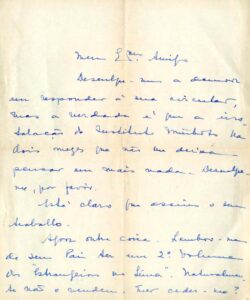 Meu Exmo Amigo
Desculpe-me a demora
em responder à sua circular,
mas a verdade é que a ins-
talação do Institut
dois meses que não me deixa
pensar em mais nada. Desculpe-
me, por favor.
Está claro que assino o seu
trabalho.
Agora outra coisa. Lembro-me
do seu Pai ter um 2º Volume
dos "Estrangeiros no Lima". Naturalmen-
te não o vendem. Quer ceder-mo?